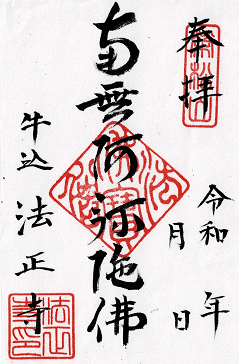 奉拝
令和 年
月 日
南無阿弥陀佛
牛込 法正寺